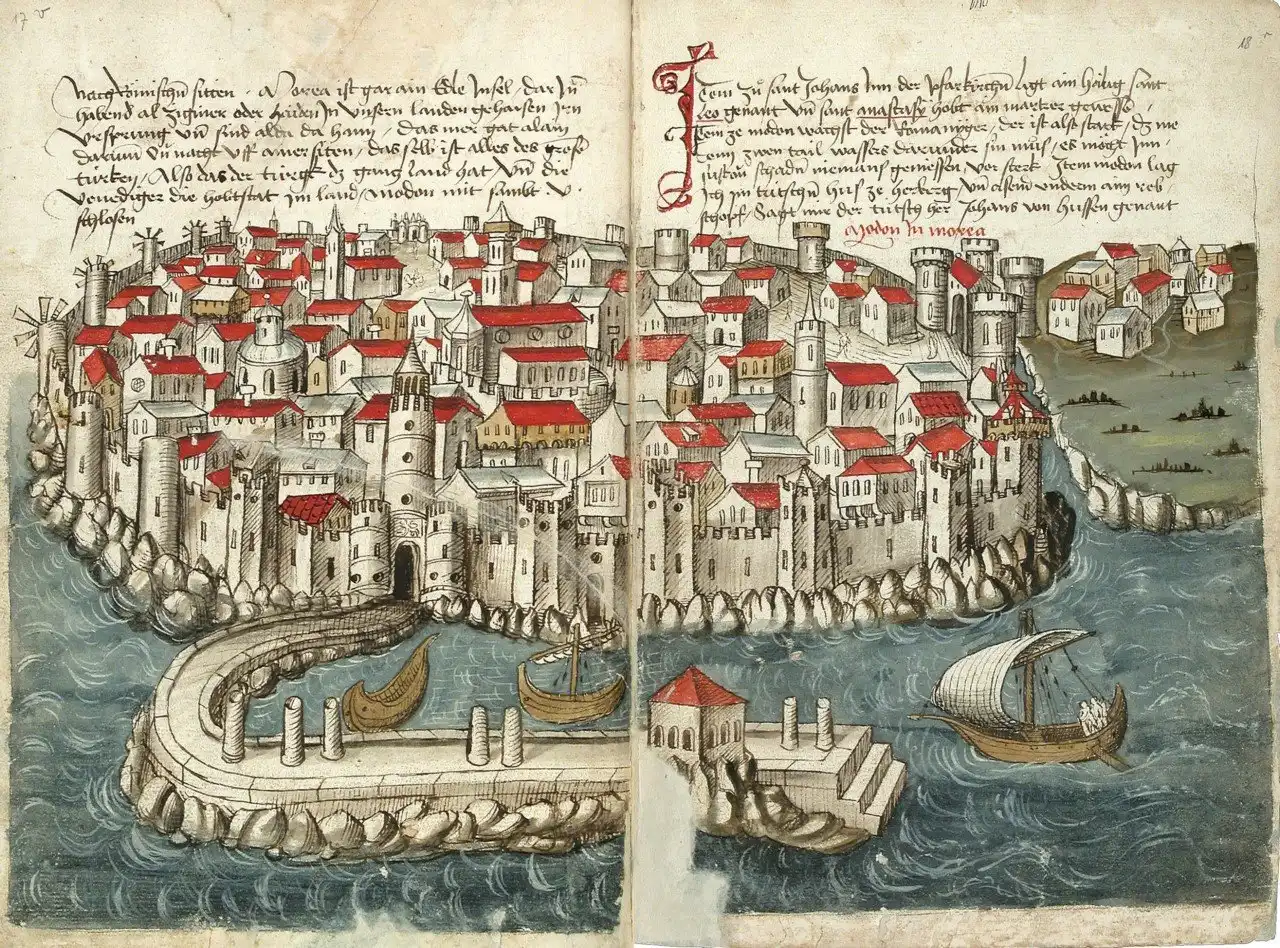 17 v
nach römischñ sitten · Morea ist gar ain Edle Insel, dar jn̄
habend al Ziginer oder haiden Jn Unsern landen gehaisen Jrn
Vrsprung Vn̄ sind alda da haim, das mer gat alain
darum̄ Vn̄ nacht Vff ainer siten, das selb ist alles des groſs
türken, Also das der türgk dz gantz land hat, Vn̄ die
Venediger die hobtstat jm land, Modon mit sambt
schlosen
18 r
Item Zu sant Johans Jnn der Pfarkirchn̄ ligt ain hailig Sant
Leo genant Vn̄ sant anastasy hobt ain martrer gewesse
Item ze modon wachst der Romanÿger, der ist alst starck, dz me
zwen tail wassers darunder jm mus, es mocht Jnn
schadn̄ niemans geniessen, vor sterk Item modon lag
Jch jm tütschn̄ Hus ze herberg Vn̄ asem Underm aim reb
schopf, Sagt mir der tütsch her Johans von Hussen genant
Modon Jn morea